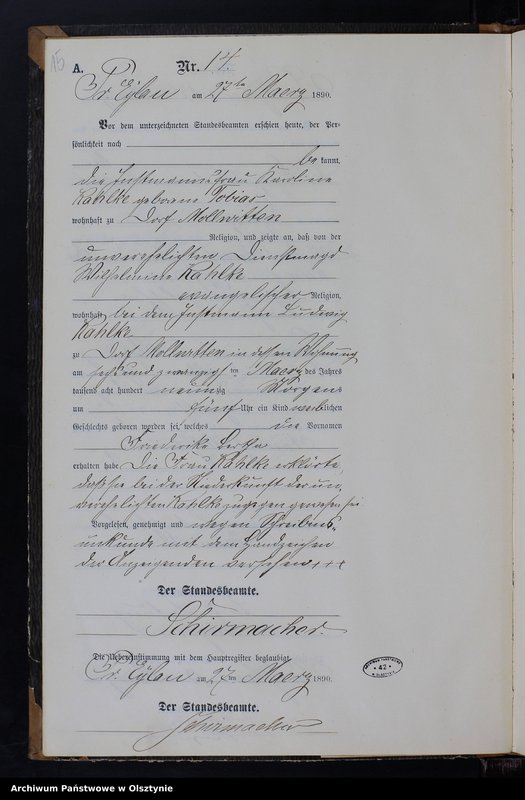 15
A.
Nr. 14.
Pr. Eylau am 27ten Maerz 1890.
Vor dem unterzeichneten Standesbeamten erschien heute, der Per-
sönlichkeit nach
be kannt,
die Instmannsfrau Karoline
Kahlke geborene Tobias
wohnhaft zu Dorf Mollwitten
Religion, und zeigte an, daß von der
unverehelichten Dienstmagd
Wilhelmine Kahlke
evangelischer Religion,
wohnhaft bei dem Instmann Ludwig
Kahlke
zu Dorf Mollwitten in dessen Wohnung
am sechs und zwanzigsten Maerz des Jahres
tausend acht hundert neunzig Morgens
um fünf Uhr ein Kind weiblichen
Geschlechts geboren worden sei, welches die Vornamen
Friederike Bertha
erhalten habe. Die Frau Kahlke erklärte,
daß sie bei der Niederkunft der un,
verehelichten Kahlke zugegen gewesen sei
Vorgelesen, genehmigt und wegen Schreibens,
unkunde mit dem Handzeichen
der Anzeigenden versehen +++
Der Standesbeamte.
Schirmacher.
Die Uebereinstimmung mit dem Hauptregister beglaubigt.
Pr. Eylau am 27ten Maerz 1890.
Der Standesbeamte.
Schirmacher
42
Archiwum Państwowe w Olsztynie